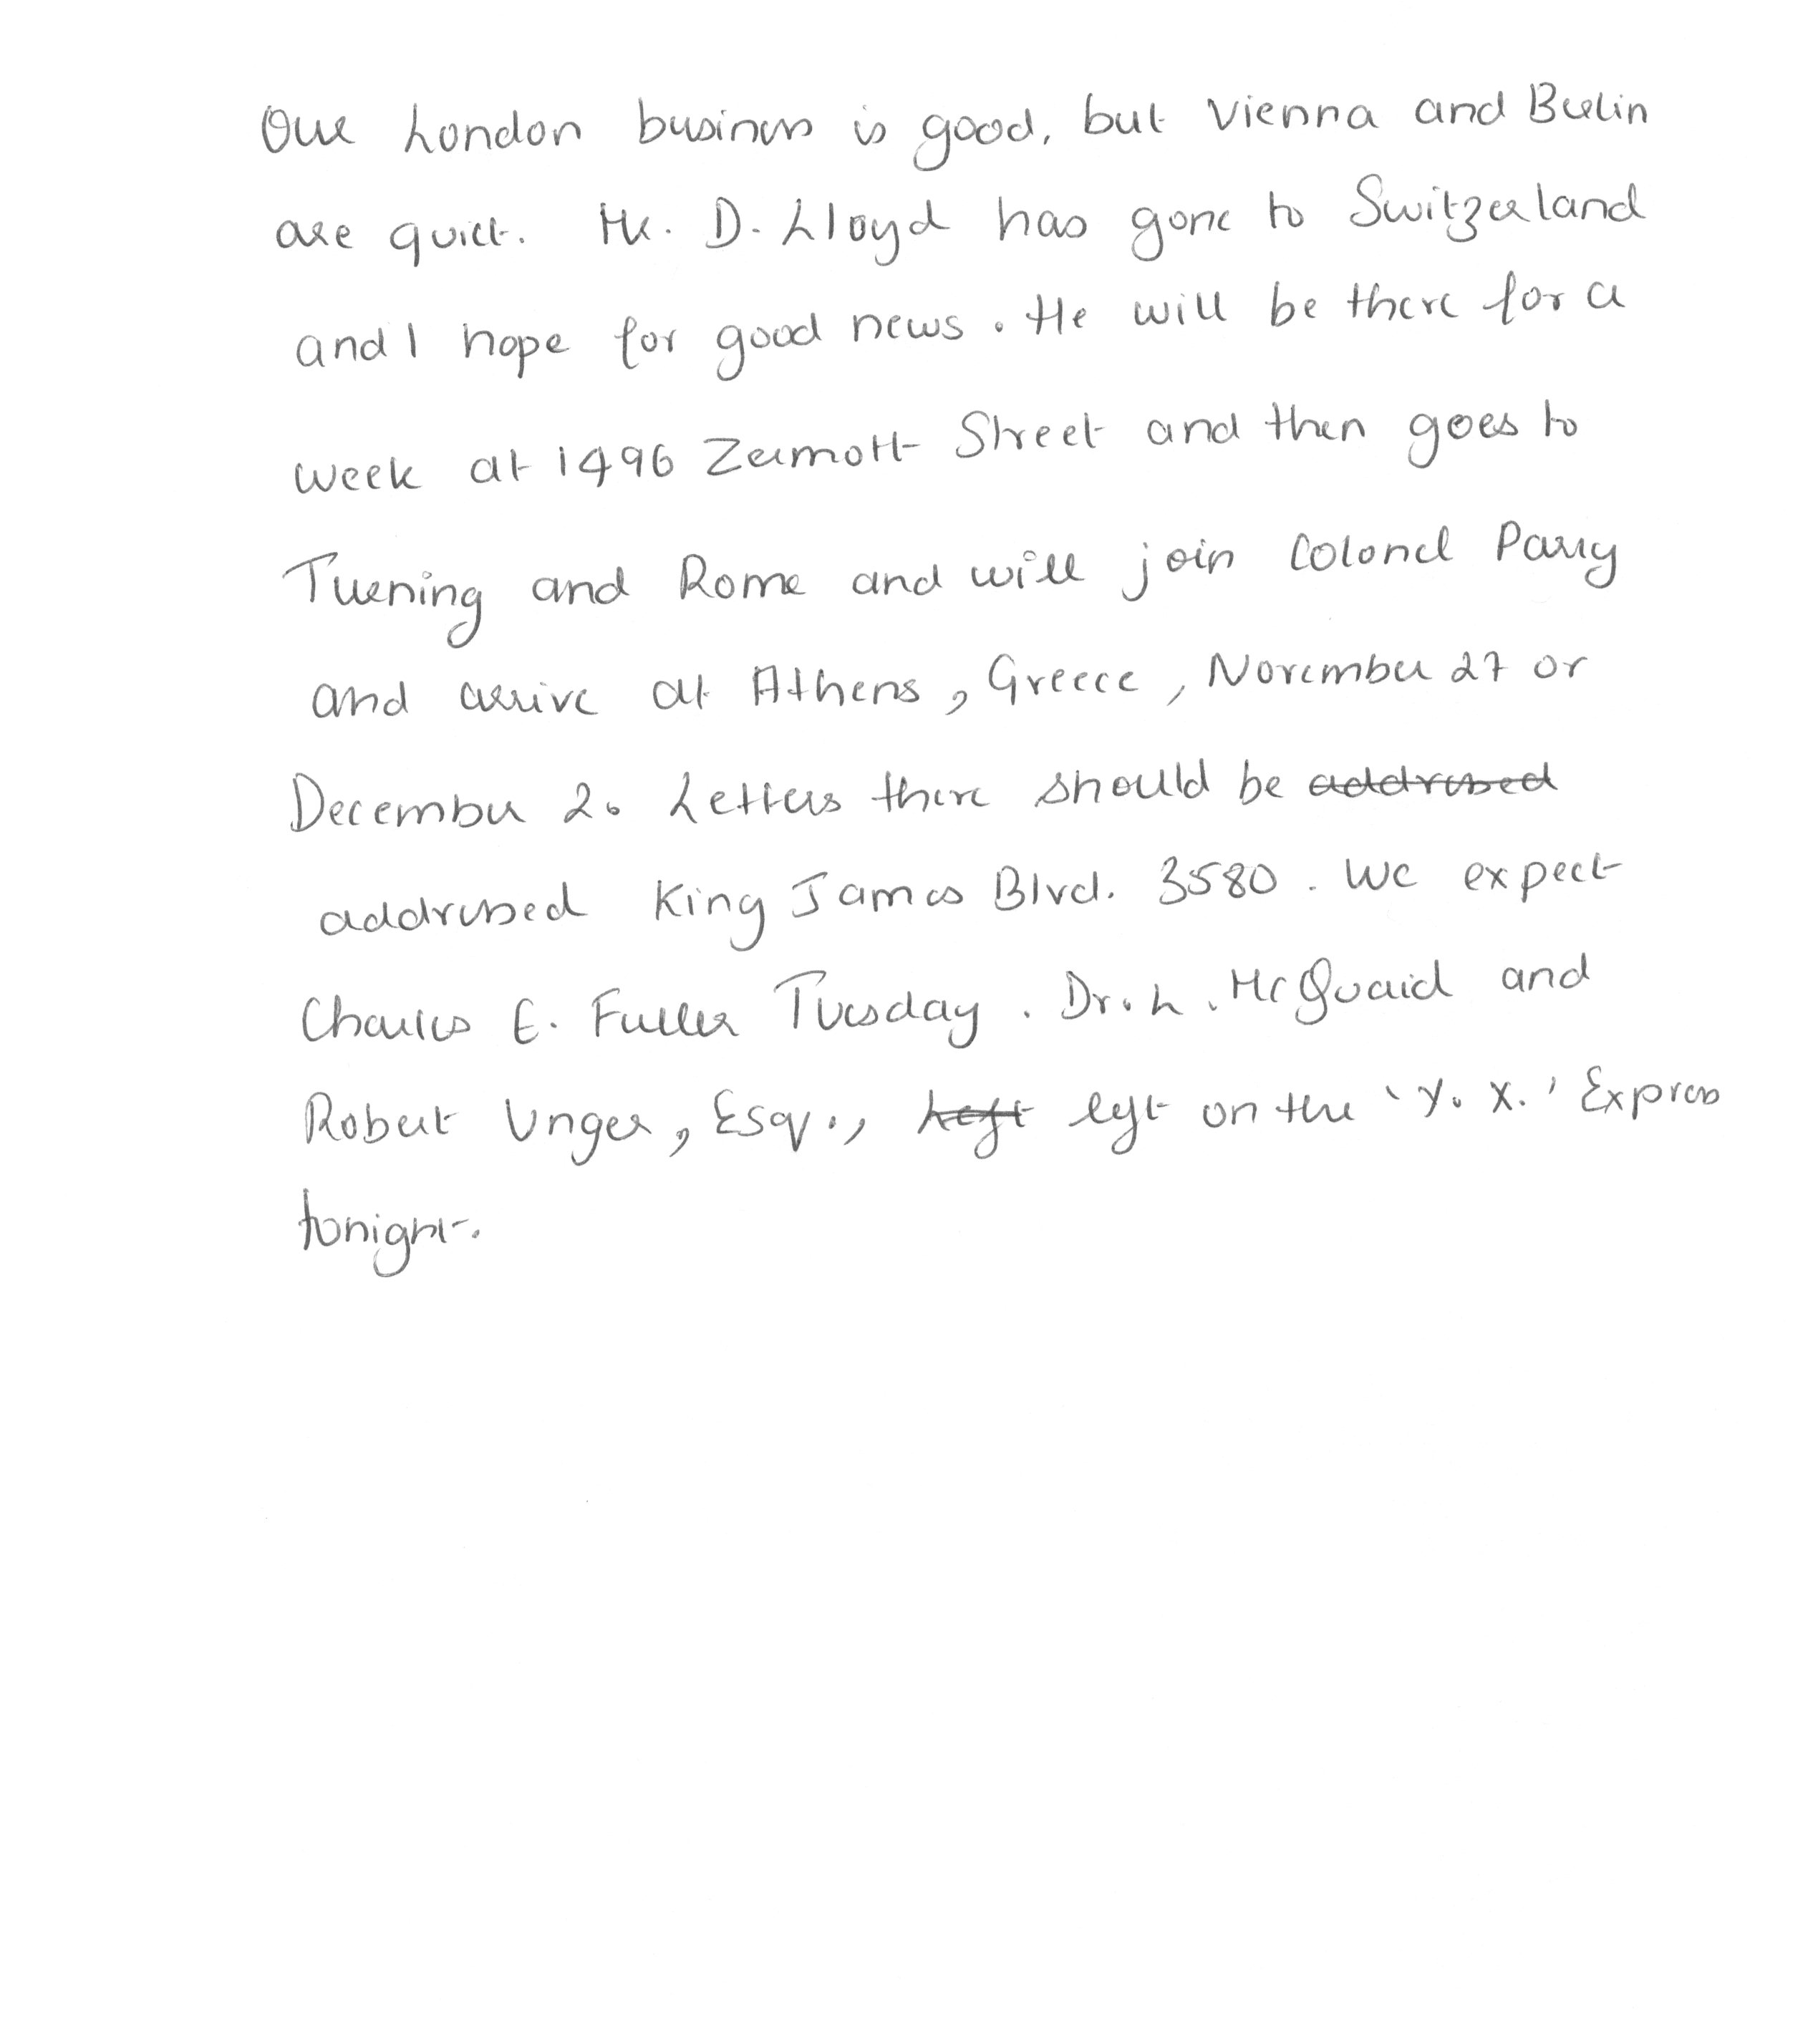 Our London business is good, but Vienna and Berlin
are quiet. Mr. D. Lloyd has gone to Switzerland
and I hope for good news. He will be there for a
week at 1496 Zermott Street and then goes to
Turening and Rome and will join Colonel Parry
and arrive at Athens, Greece, November 27 or
December 2. Letters there should be addressed
addressed King James Blvd. 3580. We expect
Charles E. Fuller Tuesday. Dr. L. McQuaid and
Robert Unger, Esq., Left left on the 'Y. X.' Express
tonight.